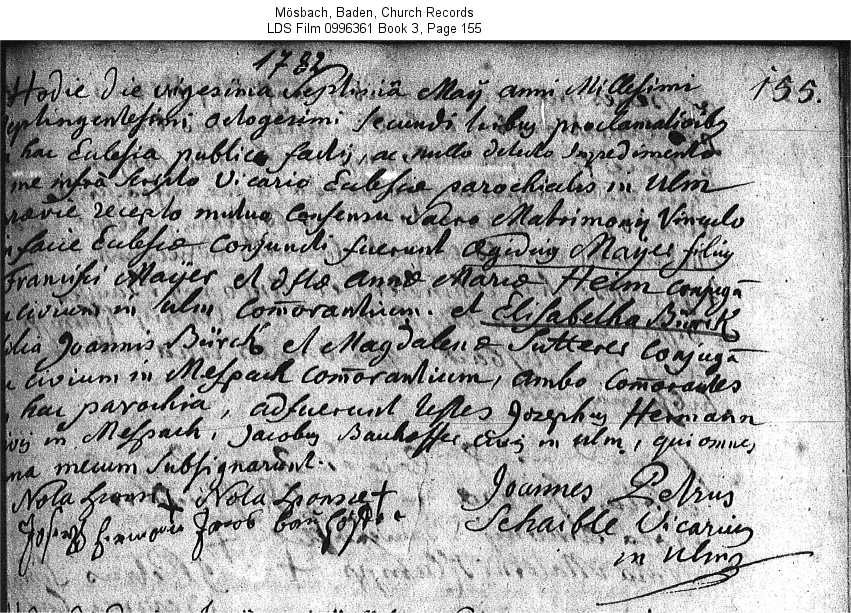 Mösbach, Baden, Church Records
LDS Film 0996361 Book 3, Page 155
1782
155.
Hodie die vigesima septima Maÿ anni Millesimi
septingentesimi octogesimi secundi tribus proclamationibus
hac Eclesia publice factis, ac nullo detecto Impedimento
me infra scripto Vicario Eclesiæ parochialis in Ulm
prævie recepto mutuo consensu Sacro Matrimonij Vinculo
facie Eclesiæ conjuncti fuerunt Ægidius Maÿer filius
Francisci Maÿer et dstæ annæ Mariæ Heim conjugū
civium in Ulm com̄orantium. et Elisabetha Bürck
filia Joannis Bürck et Magdalenæ Sutterer conjugū
civium in Mespach com̄orantium, ambo com̄orantes
hac parochia, adfuerunt testes Josephus Hermann
civis in Mespach, Jacobus Bauhoffer civis in Ulm, qui omnes
una mecum subsignarunt.
Nota sponsi + Nota sponsæ +
Joseph Hermann Jacob
Joannes Petrus
Schaible Vicarius
in Ulm